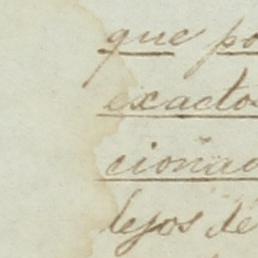 que po
exactos
cionad
lejos de